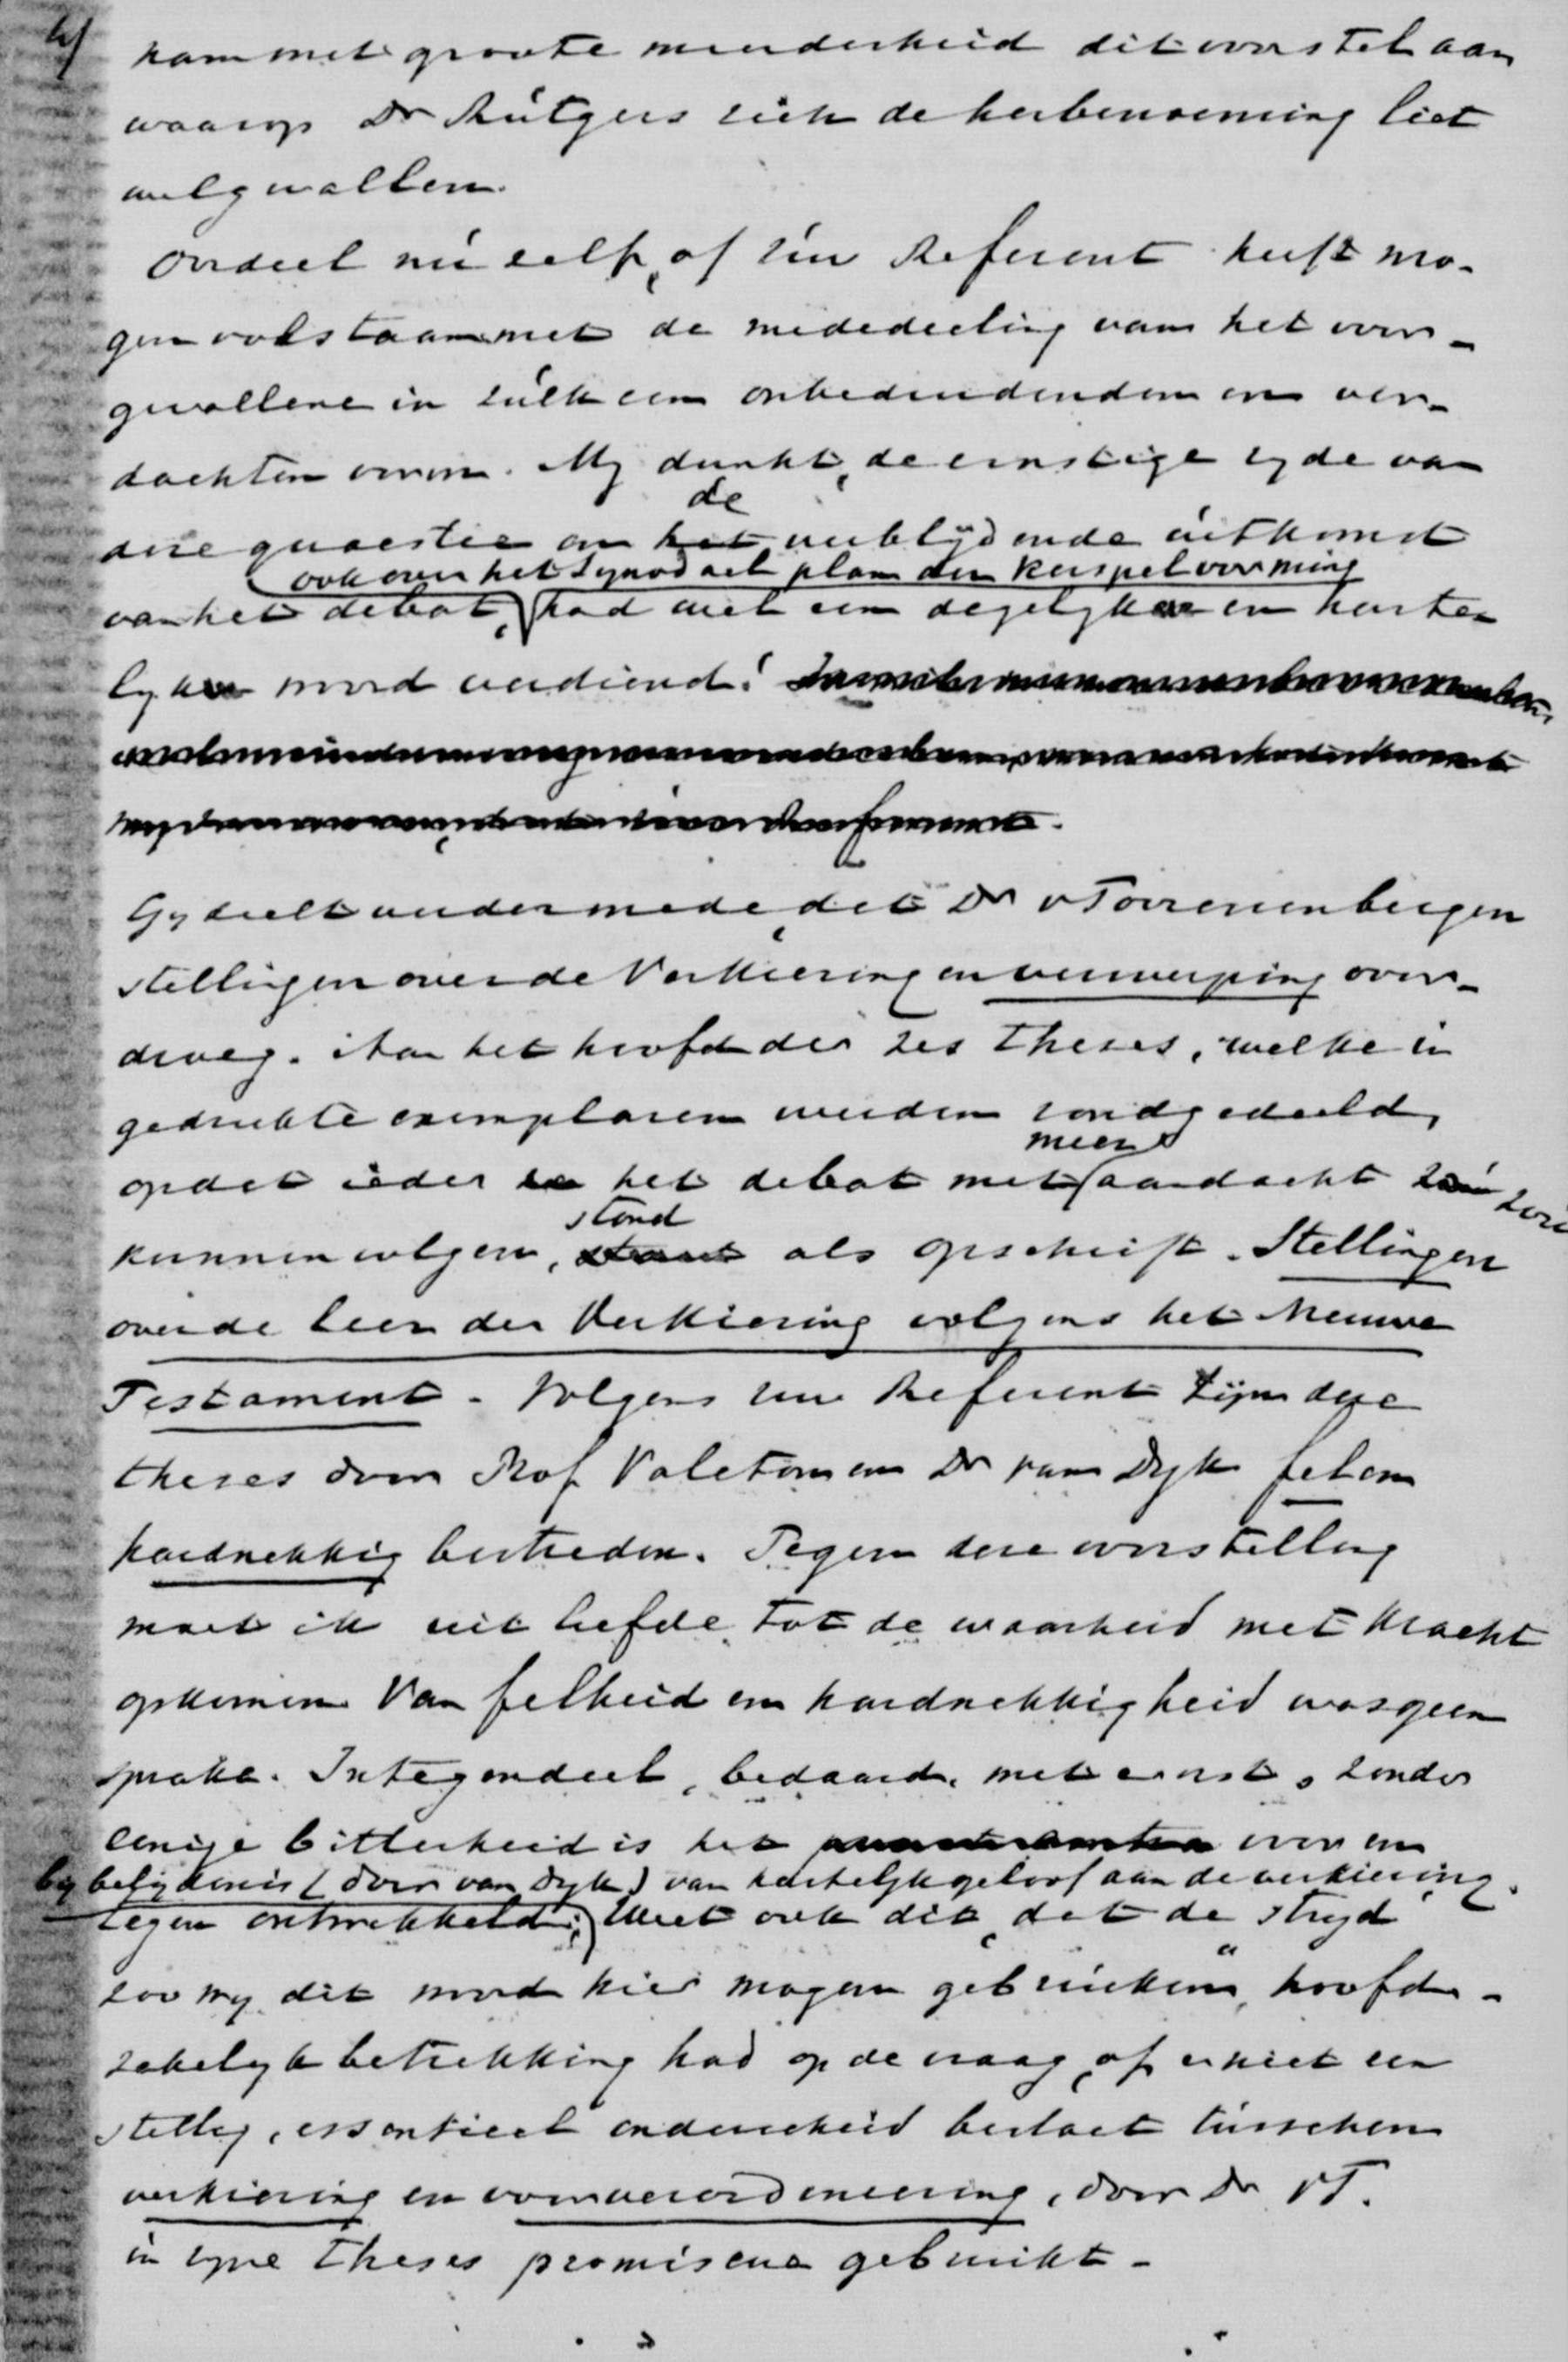 4/
nam met groote meerderheid dit voorstel aan
waarop Dr Rutgers zich de herbenoeming liet
welgevallen.
Oordeel nu zelf, of Uw Referent heeft mo-
gen volstaan met de mededeeling van het voor-
gevallene in zulk een onbeduidenden en ver-
dachten vorm. My dunkt, de ernstige zyde van
de
deze quaestie en het verblijdende uitkomst
ook over het Synodael plan der kerspelvorming
van het debat, had wel een degelyker en harte-
lyker woord verdiend!
Gy deelt verder mede, dat Dr v Toorenenbergen
stellingen over de Verkiezing en verwerping voor-
droeg. Aan het hoofd der zes Theses, welke in
gedrukte exemplaren werden rondgedeeld,
meer
opdat ieder het debat met aandacht zou
stond
kunnen volgen, als opschrift. Stellingen
over de leer der Verkiezing volgens het Nieuwe
Testament. Volgens uw Referent zijn deze
theses door Prof Valeton en Dr van Dyk fel en
hardnekkig bestreden. Tegen deze voorstelling
moet ik uit liefde tot de waarheid met kracht
opkomen Van felheid en hardnekkigheid was geen
sprake. Integendeel, bedaard, met ernst, zonder
eenige bitterheid is het voor en
by belydenis (door van Dyk) van hartelyk geloof aan de verkiezing.
tegen ontwikkeld; Weet ook dit, dat de stryd
zoo wy dit woord hier mogen gebruiken, hoofd-
zakelyk betrekking had op de vraag, of er niet een
stellig, essentieel onderscheid bestaat tusschen
verkiezing en voorverordeneering, door Dr vT.
in zyne Theses promiscue gebruikt.